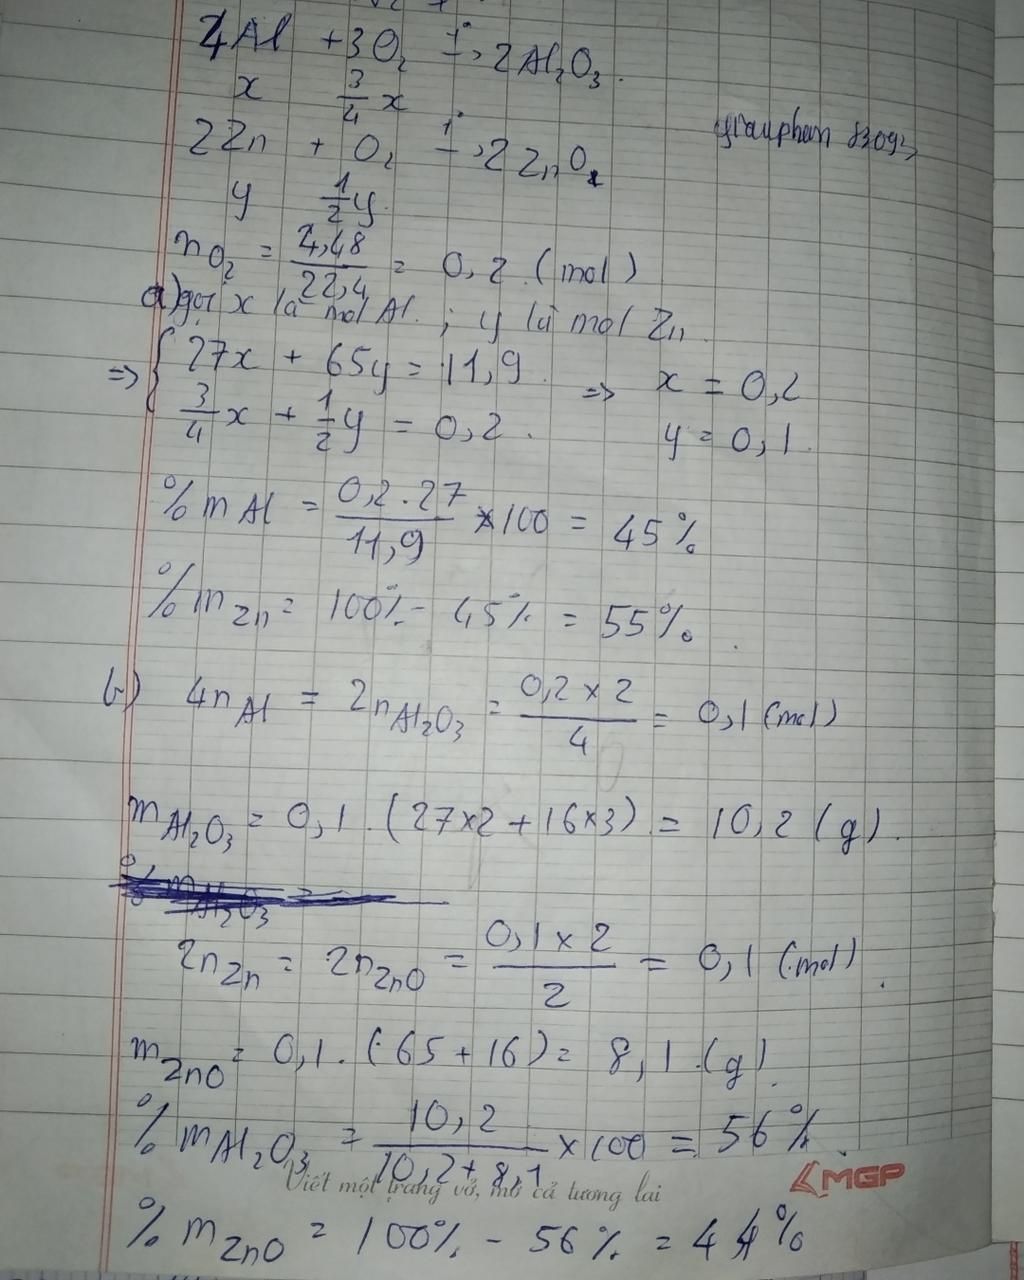 4Al + 3O₂ -t°→ 2Al₂O₃.
x 3/4 x
2Zn + O₂ -t°→ 2ZnO
y 1/2 y
nO₂ = 4,48/22,4 = 0,2 (mol)
a) gọi x là mol Al ; y là mol Zn.
=> { 27x + 65y = 11,9 => x = 0,2
3/4 x + 1/2 y = 0,2 . y = 0,1.
% mAl = 0,2.27/11,9 × 100 = 45%
% mZn = 100% - 45% = 55%.
b) 4nAl = 2nAl₂O₃ = 0,2 × 2/4 = 0,1 (mol)
mAl₂O₃ = 0,1 . (27×2 + 16×3) = 10,2 (g).
% mAl₂O₃ =
2nZn = 2nZnO = 0,1 × 2/2 = 0,1 (mol).
mZnO = 0,1 . (65 + 16) = 8,1 (g)
% mAl₂O₃ = 10,2/10,2 + 8,1 × 100 = 56%.
Viết một trang vở, mở cả tương lai
MGP
% mZnO = 100% - 56% = 44%